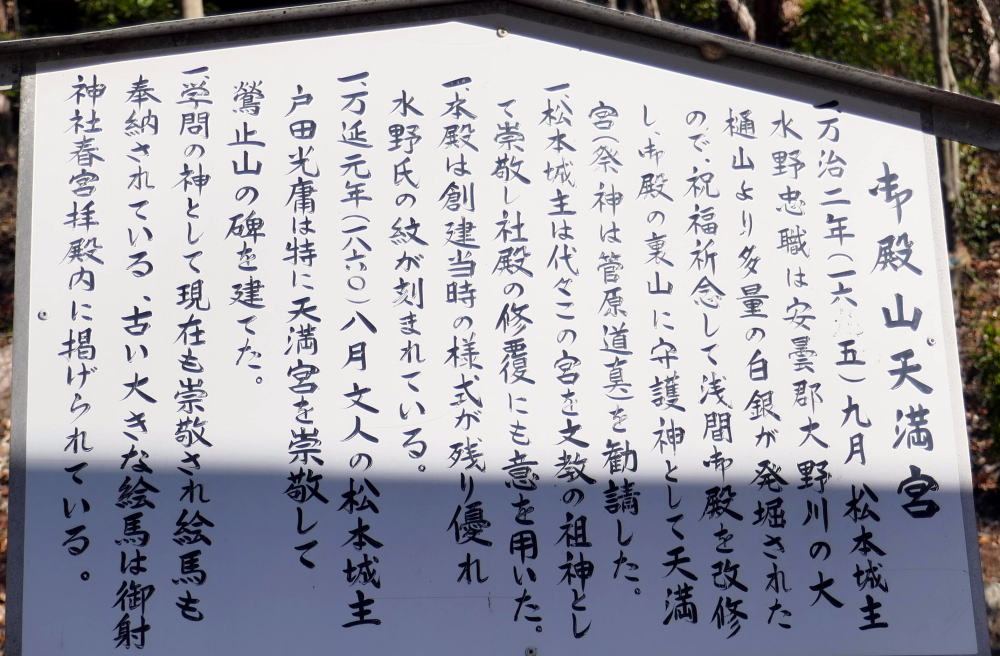 御殿山天満宮
一、万治二年（一六五五）九月松本城主
水野忠職は安曇郡大野川の大
樋山より多量の白銀が発堀された
ので、祝福祈念して浅間御殿を改修
し、御殿の裏山に守護神として天満
宮（祭神は菅原道真）を勧請した。
一、松本城主は代々この宮を文教の祖神とし
て崇敬し社殿の修覆にも意を用いた。
一、本殿は創建当時の様式が残り優れ
水野氏の紋が刻まれている。
一、万延元年（一八六〇）八月文人の松本城主
戸田光庸は特に天満宮を崇敬して
鶯止山の碑を建てた。
一、学問の神として現在も崇敬され絵馬も
奉納されている、古い大きな絵馬は御射
神社春宮拝殿内に掲げられている。